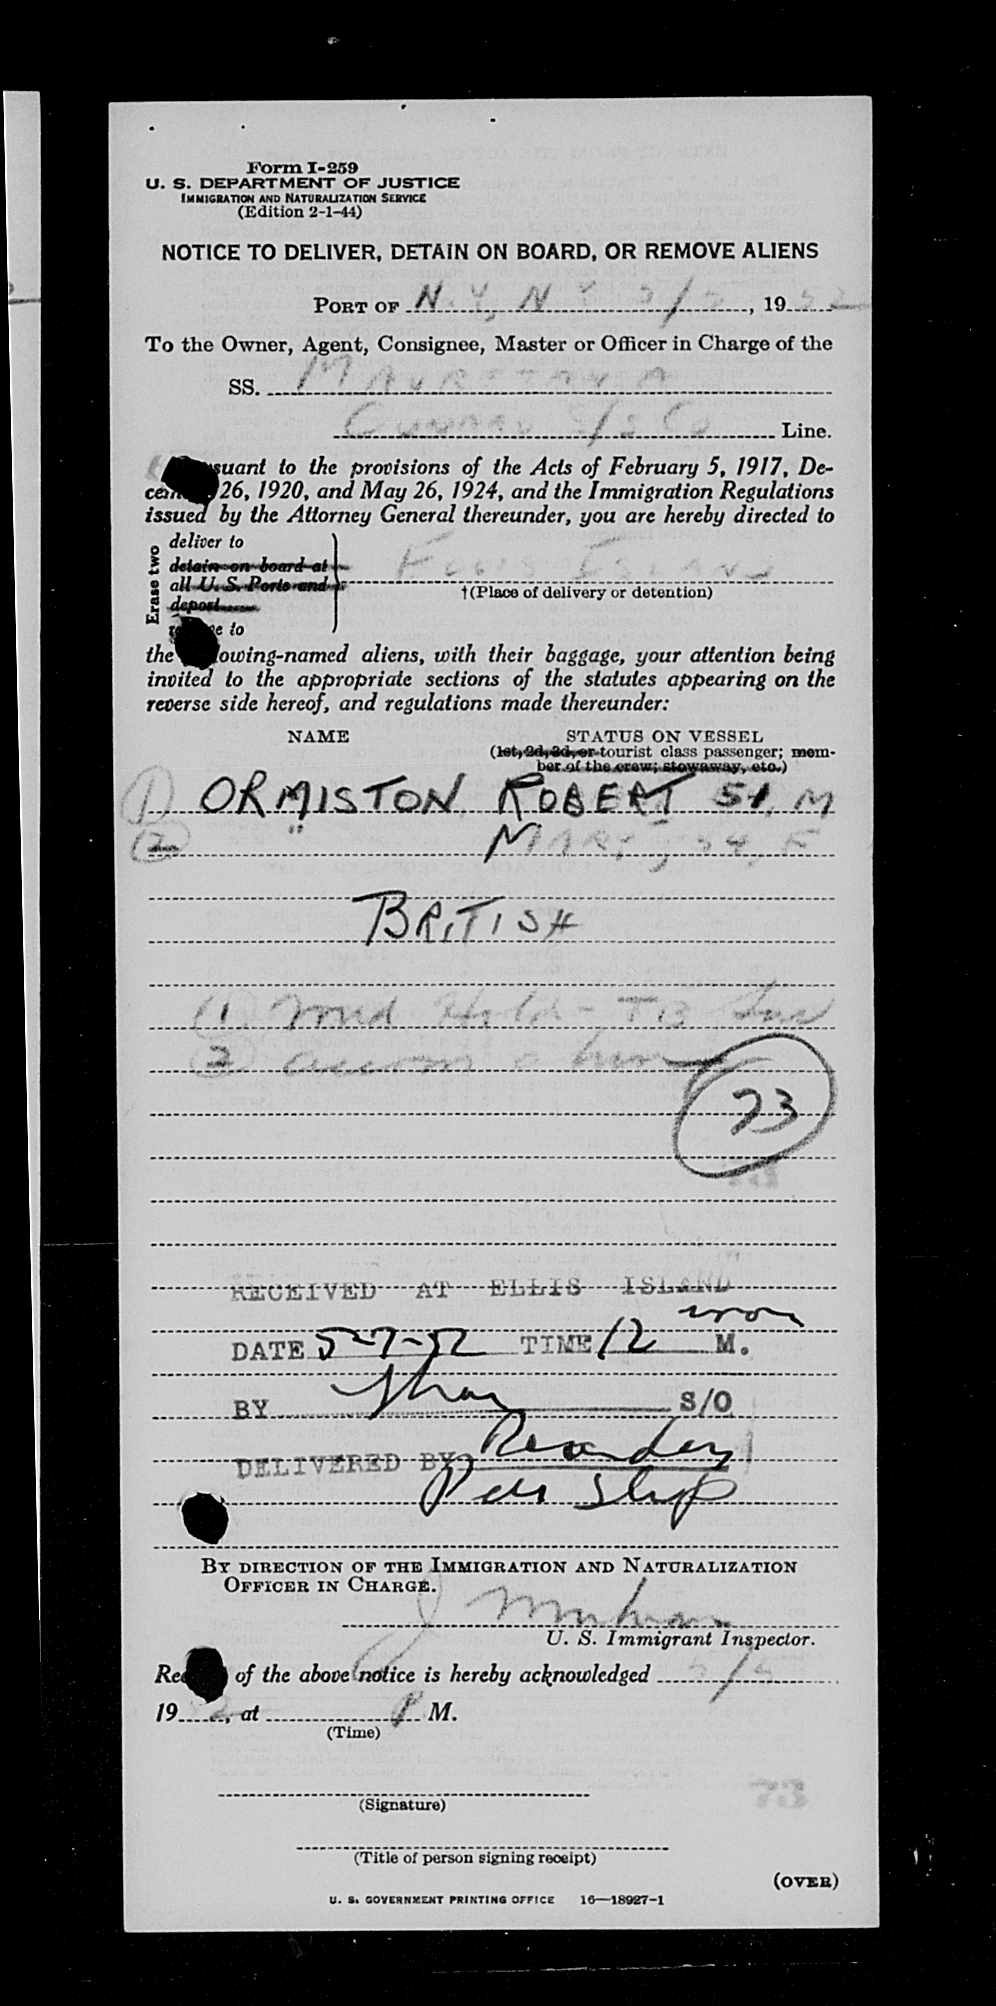 Form I-259
U. S. DEPARTMENT OF JUSTICE
IMMIGRATION AND NATURALIZATION SERVICE
(Edition 2-1-44)
NOTICE TO DELIVER, DETAIN ON BOARD, OR REMOVE ALIENS
PORT OF N.Y, N Y 5/5, 1952
To the Owner, Agent, Consignee, Master or Officer in Charge of the
SS. MAURETANIA
CUNARD S/S Co Line.
suant to the provisions of the Acts of February 5, 1917, De-
cem 26, 1920, and May 26, 1924, and the Immigration Regulations
issued by the Attorney General thereunder, you are hereby directed to
Erase two
deliver to
detain on board at
all U. S. Ports and
deport
e to
ELLIS ISLAND
†(Place of delivery or detention)
the lowing-named aliens, with their baggage, your attention being
invited to the appropriate sections of the statutes appearing on the
reverse side hereof, and regulations made thereunder:
NAME STATUS ON VESSEL
(1st, 2d, 3d, or tourist class passenger; mem-
ber of the crew; stowaway, etc.)
(1) ORMISTON, ROBERT 51, M
(2) " MARY, 54, F
BRITISH
(1) Med Hold - TB
(2) accom
73
RECEIVED AT ELLIS ISLAND
DATE 5-7-52 TIME 12 noon M.
BY S/O
DELIVERED BY
BY DIRECTION OF THE IMMIGRATION AND NATURALIZATION
OFFICER IN CHARGE.
U. S. Immigrant Inspector.
Re of the above notice is hereby acknowledged 5/5
1952, at P M.
(Time)
(Signature)
(Title of person signing receipt)
(OVER)
U. S. GOVERNMENT PRINTING OFFICE 16—18927-1